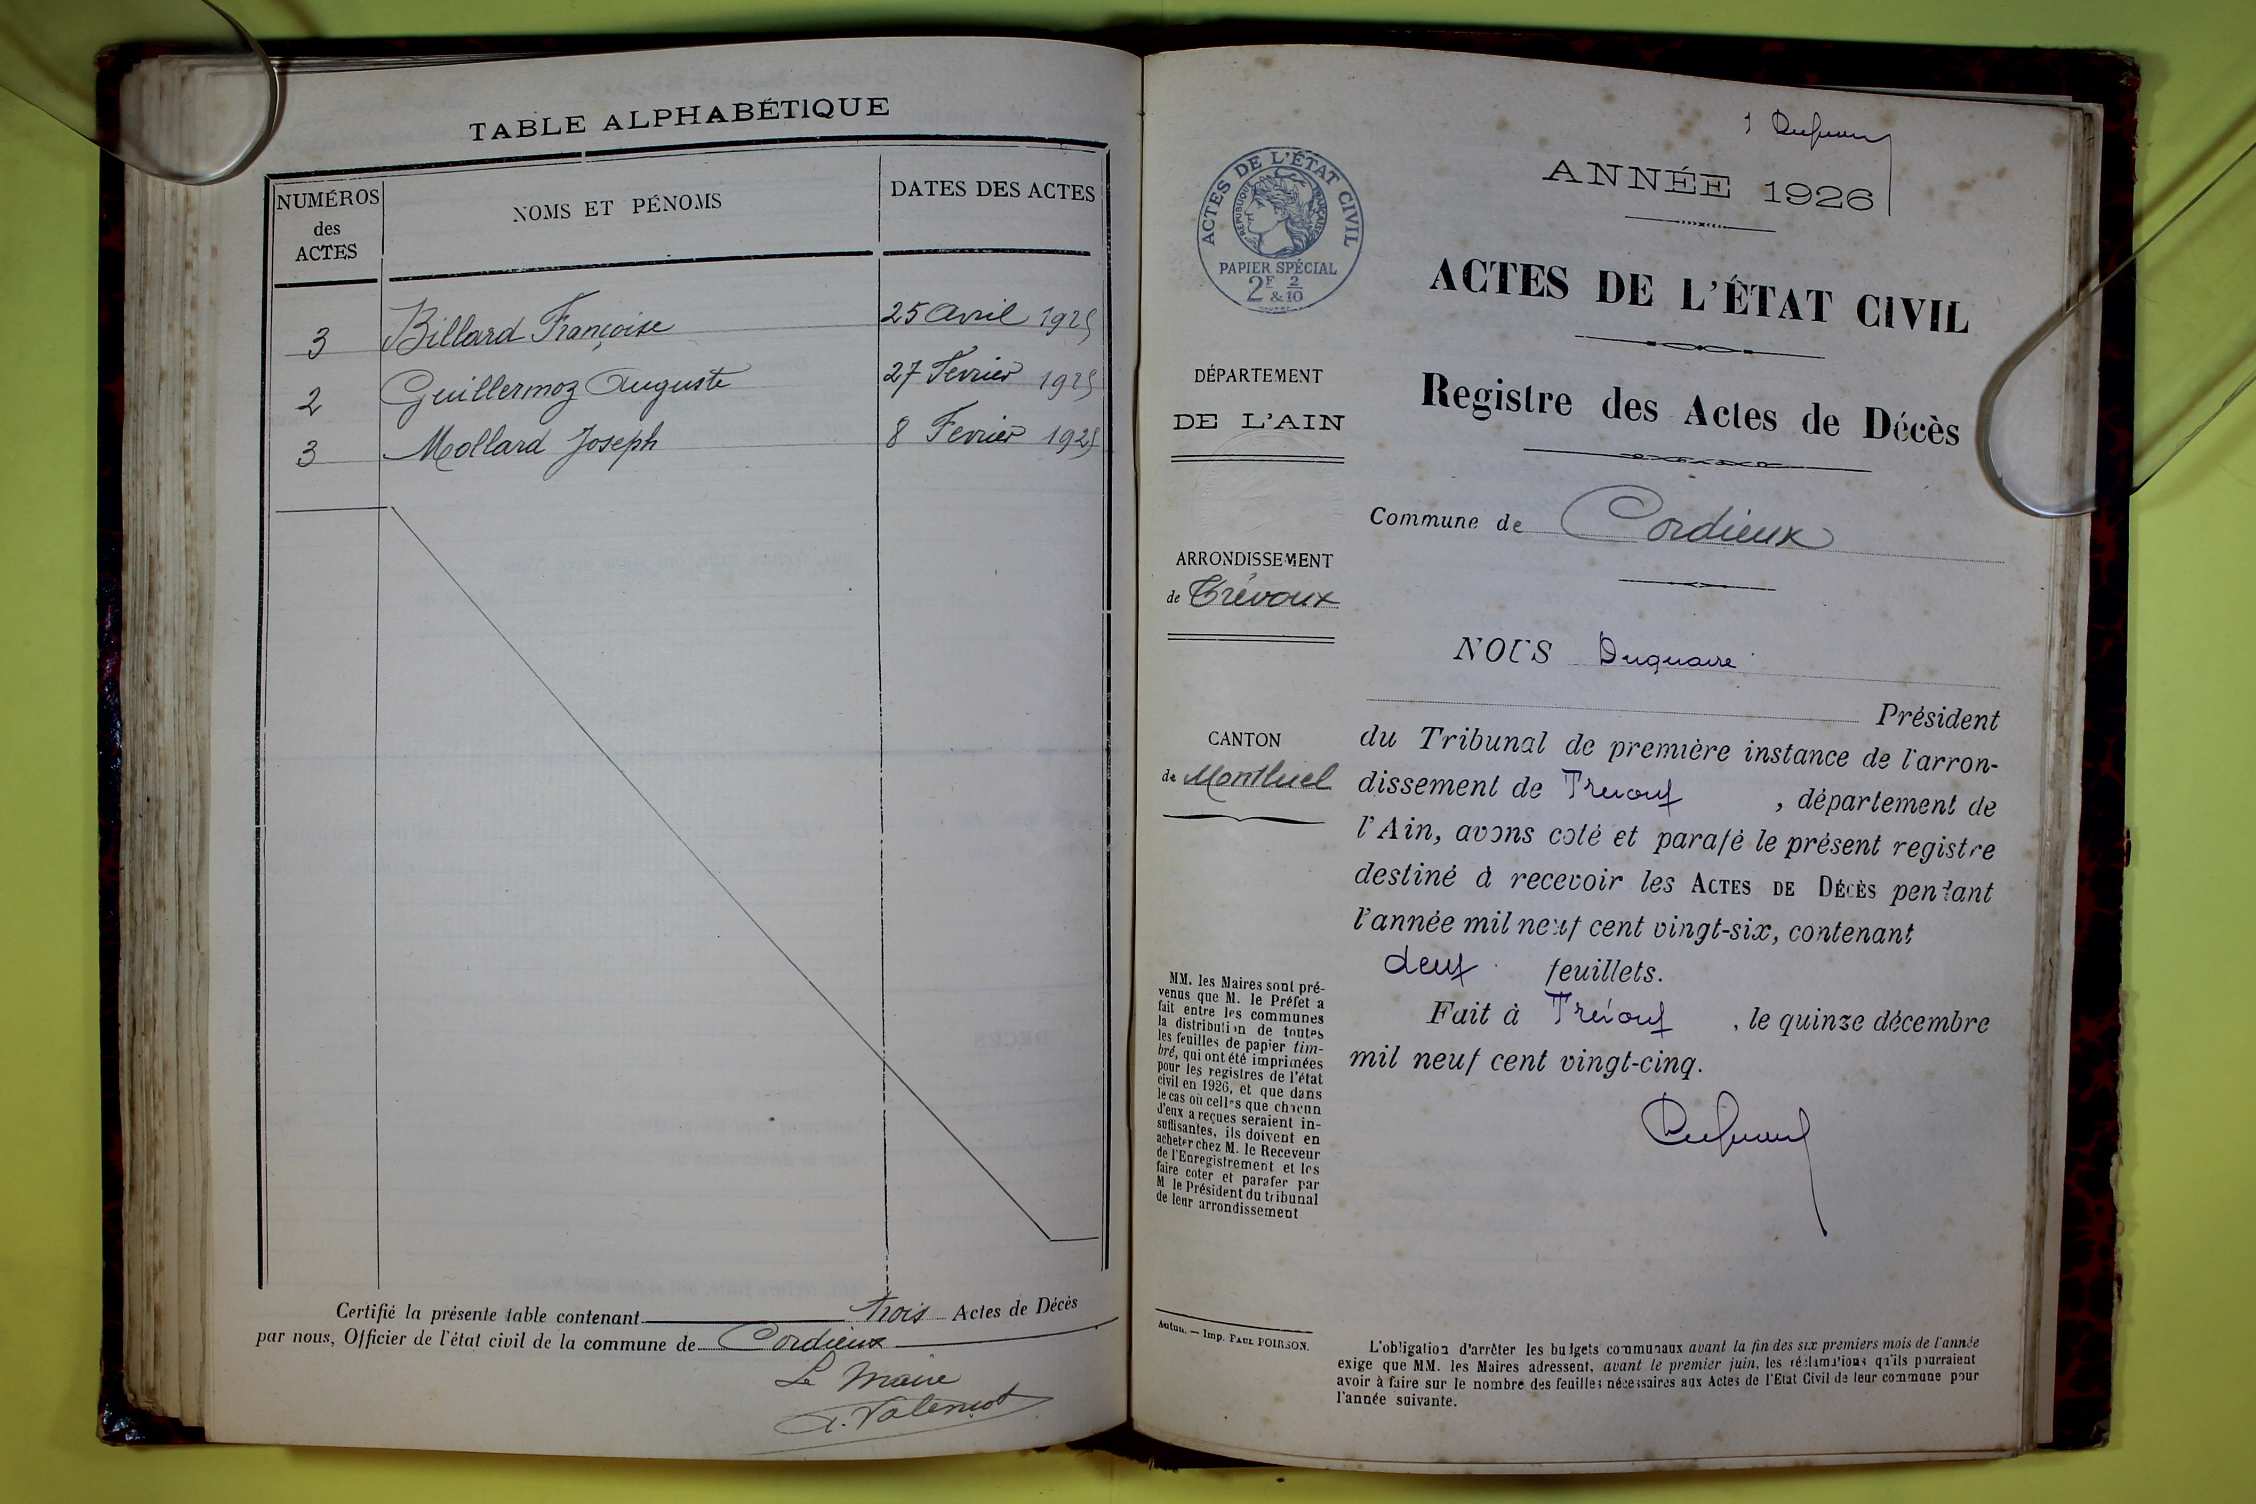 TABLE ALPHABÉTIQUE
NUMÉROS
des
ACTES
NOMS ET PÉNOMS
DATES DES ACTES
3 Billard Françoise 25 Avril 1925
2 Guillermoz Auguste 27 Fevrier 1925
3 Mollard Joseph 8 Fevrier 1925
Certifié la présente table contenant trois Actes de Décès
par nous, Officier de l'état civil de la commune de Cordieux
Le Maire
1
ANNÉE 1926
ACTES DE L'ÉTAT CIVIL
RÉPUBLIQUE FRANÇAISE
PAPIER SPÉCIAL
2F 2
& 10
ACTES DE L'ÉTAT CIVIL
Registre des Actes de Décès
DÉPARTEMENT
DE L'AIN
ARRONDISSEMENT
de Trévoux
CANTON
de Montluel
MM. les Maires sont pré-
venus que M. le Préfet a
fait entre les communes
la distribution de toutes
les feuilles de papier tim-
bré, qui ont été imprimées
pour les registres de l'état
civil en 1926, et que dans
le cas où celles que chacun
d'eux a reçues seraient in-
suffisantes, ils doivent en
acheter chez M. le Receveur
de l'Enregistrement et les
faire coter et parafer par
M le Président du tribunal
de leur arrondissement
Autun. — Imp. PAUL POIRSON.
Commune de Cordieux
NOUS Duquaire
Président
du Tribunal de première instance de l'arron-
dissement de Trévoux , département de
l'Ain, avons coté et parafé le présent registre
destiné à recevoir les ACTES DE DÉCÈS pendant
l'année mil neuf cent vingt-six, contenant
deux feuillets.
Fait à Trévoux , le quinze décembre
mil neuf cent vingt-cinq.
L'obligation d'arrêter les budgets communaux avant la fin des six premiers mois de l'année
exige que MM. les Maires adressent, avant le premier juin, les réclamations qu'ils pourraient
avoir à faire sur le nombre des feuilles nécessaires aux Actes de l'Etat Civil de leur commune pour
l'année suivante.